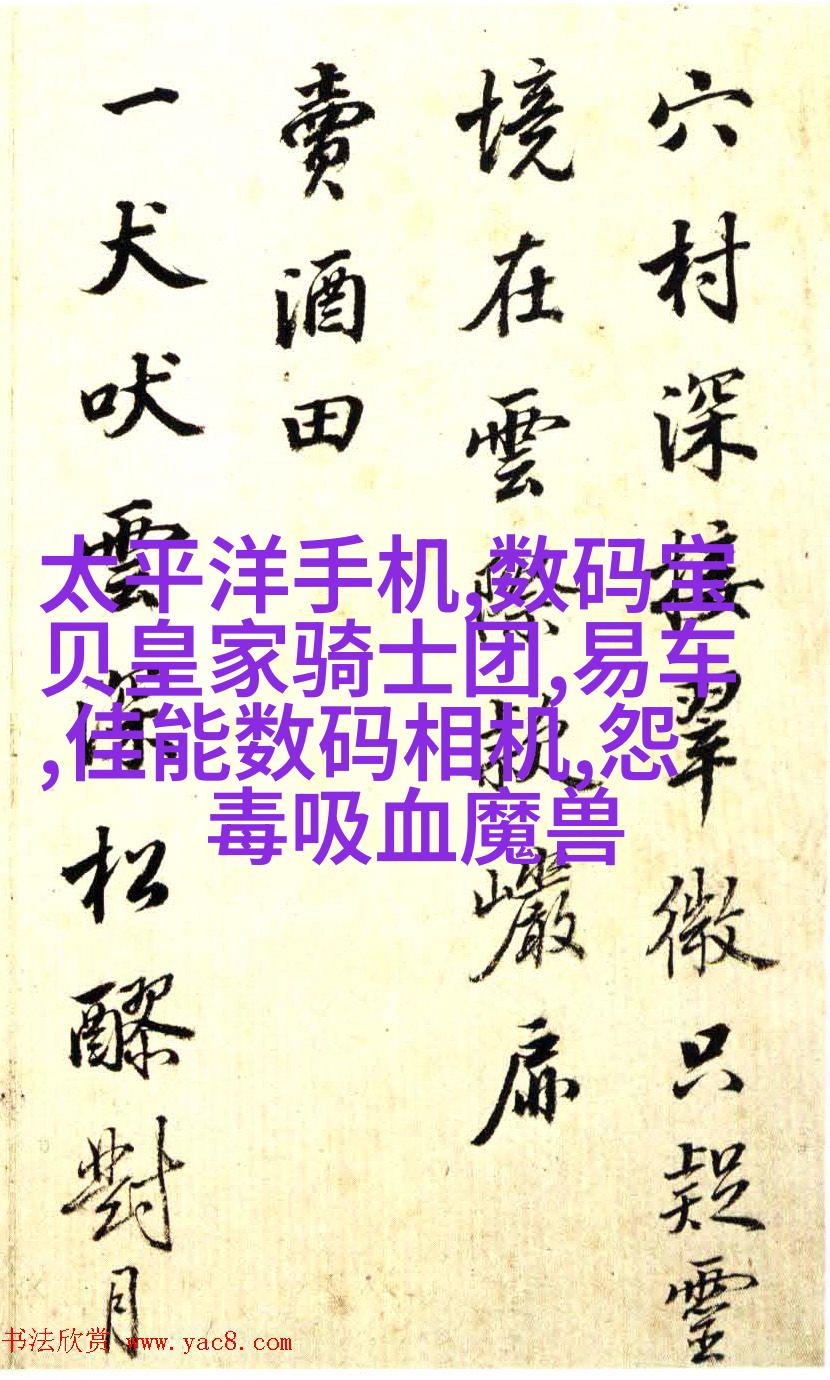 穴村深接翠微只疑靈
境在雲際款巖扉
賣酒田
一犬吠雲深松醪對月
太平洋手机,数码宝
贝皇家骑士团,易车
,佳能数码相机,怨
毒吸血魔兽
书法欣赏 www.yac8.com